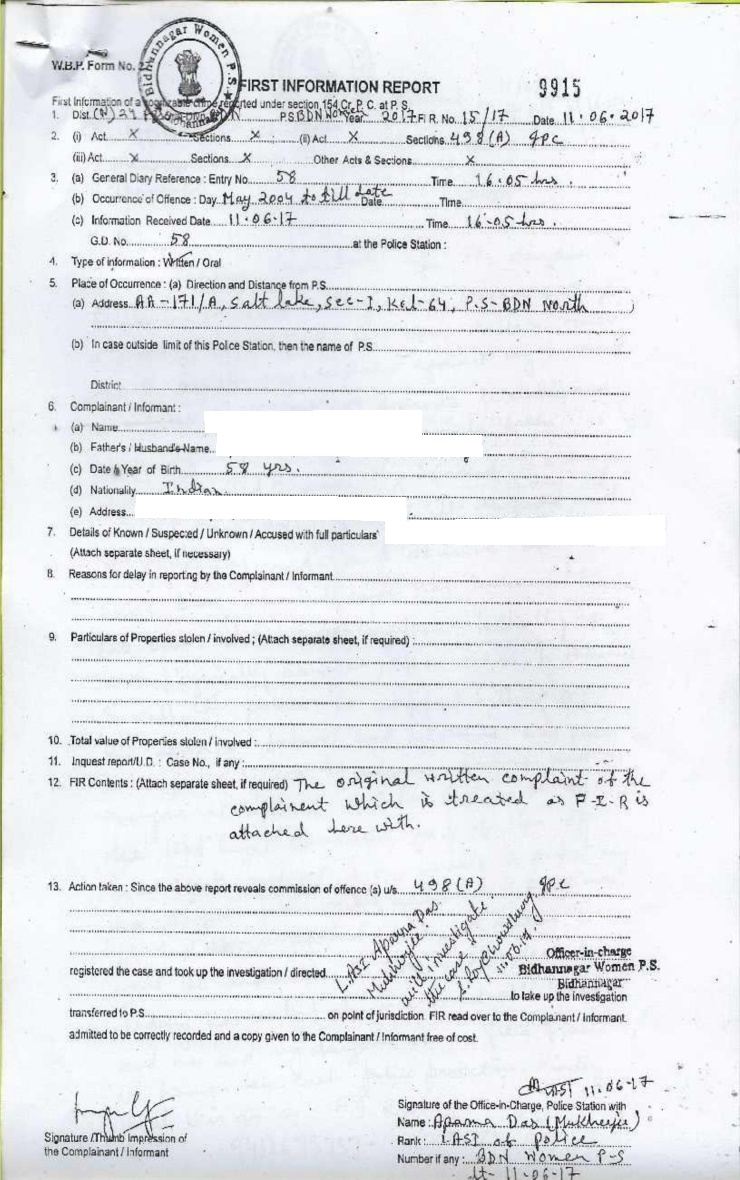 Bidhannagar Women P.S.
W.B.P. Form No. 2
FIRST INFORMATION REPORT 9915
First Information of a cognizable crime reported under section 154 Cr. P. C. at P. S.
1. Dist. (N) 24 P.S BDN Women Year 2017 F.I.R. No. 15/17 Date 11.06.2017
2. (i) Act X Sections X (ii) Act X Sections 498(A) IPC
(iii) Act X Sections X Other Acts & Sections X
3. (a) General Diary Reference : Entry No. 58 Time 16.05 hrs.
(b) Occurrence of Offence : Day May 2004 to till date Date Time
(c) Information Received Date 11.06-17 Time 16-05 hrs.
G.D. No. 58 at the Police Station :
4. Type of information : Written / Oral
5. Place of Occurrence : (a) Direction and Distance from P.S.
(a) Address AA-171/A, Salt lake, Sec-I, Kol-64, P.S-BDN North
(b) In case outside limit of this Police Station, then the name of P.S.
District
6. Complainant / Informant :
(a) Name
(b) Father's / Husband's Name
(c) Date & Year of Birth 58 yrs.
(d) Nationality Indian
(e) Address
7. Details of Known / Suspected / Unknown / Accused with full particulars'
(Attach separate sheet, if necessary)
8. Reasons for delay in reporting by the Complainant / Informant
9. Particulars of Properties stolen / involved ; (Attach separate sheet, if required) :
10. Total value of Properties stolen / involved :
11. Inquest report/U.D. : Case No., if any :
12. FIR Contents : (Attach separate sheet, if required) The original written complaint of the
complainent which is treated as F-I-R is
attached here with.
13. Action taken : Since the above report reveals commission of offence (a) u/s 498(A) IPC
L.ASI Aparna Das
Mukherjee
will investigate
the case
S. Roy Chowdhury
11.06.17
Officer-in-charge
Bidhannagar Women P.S.
Bidhannagar
registered the case and took up the investigation / directed
to take up the investigation
transferred to P.S. on point of jurisdiction. FIR read over to the Complainant / Informant.
admitted to be correctly recorded and a copy given to the Complainant / Informant free of cost.
11.06-17
Signature of the Office-in-Charge, Police Station with
Name : Aparna Das (Mukherjee)
Signature /Thumb Impression of
the Complainant / Informant
Rank : LASI of Police
Number if any : BDN Women P-S
dt- 11-06-17